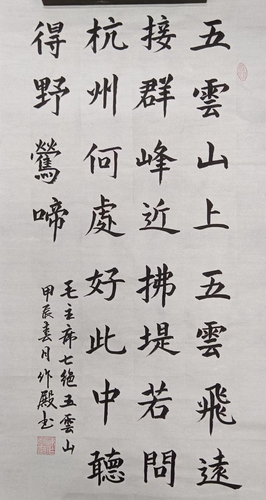 五雲山上五雲飛遠
接群峰近拂堤若問
杭州何處好此中聽
得野鶯啼
毛主席七絶五雲山
甲辰春月作殿书